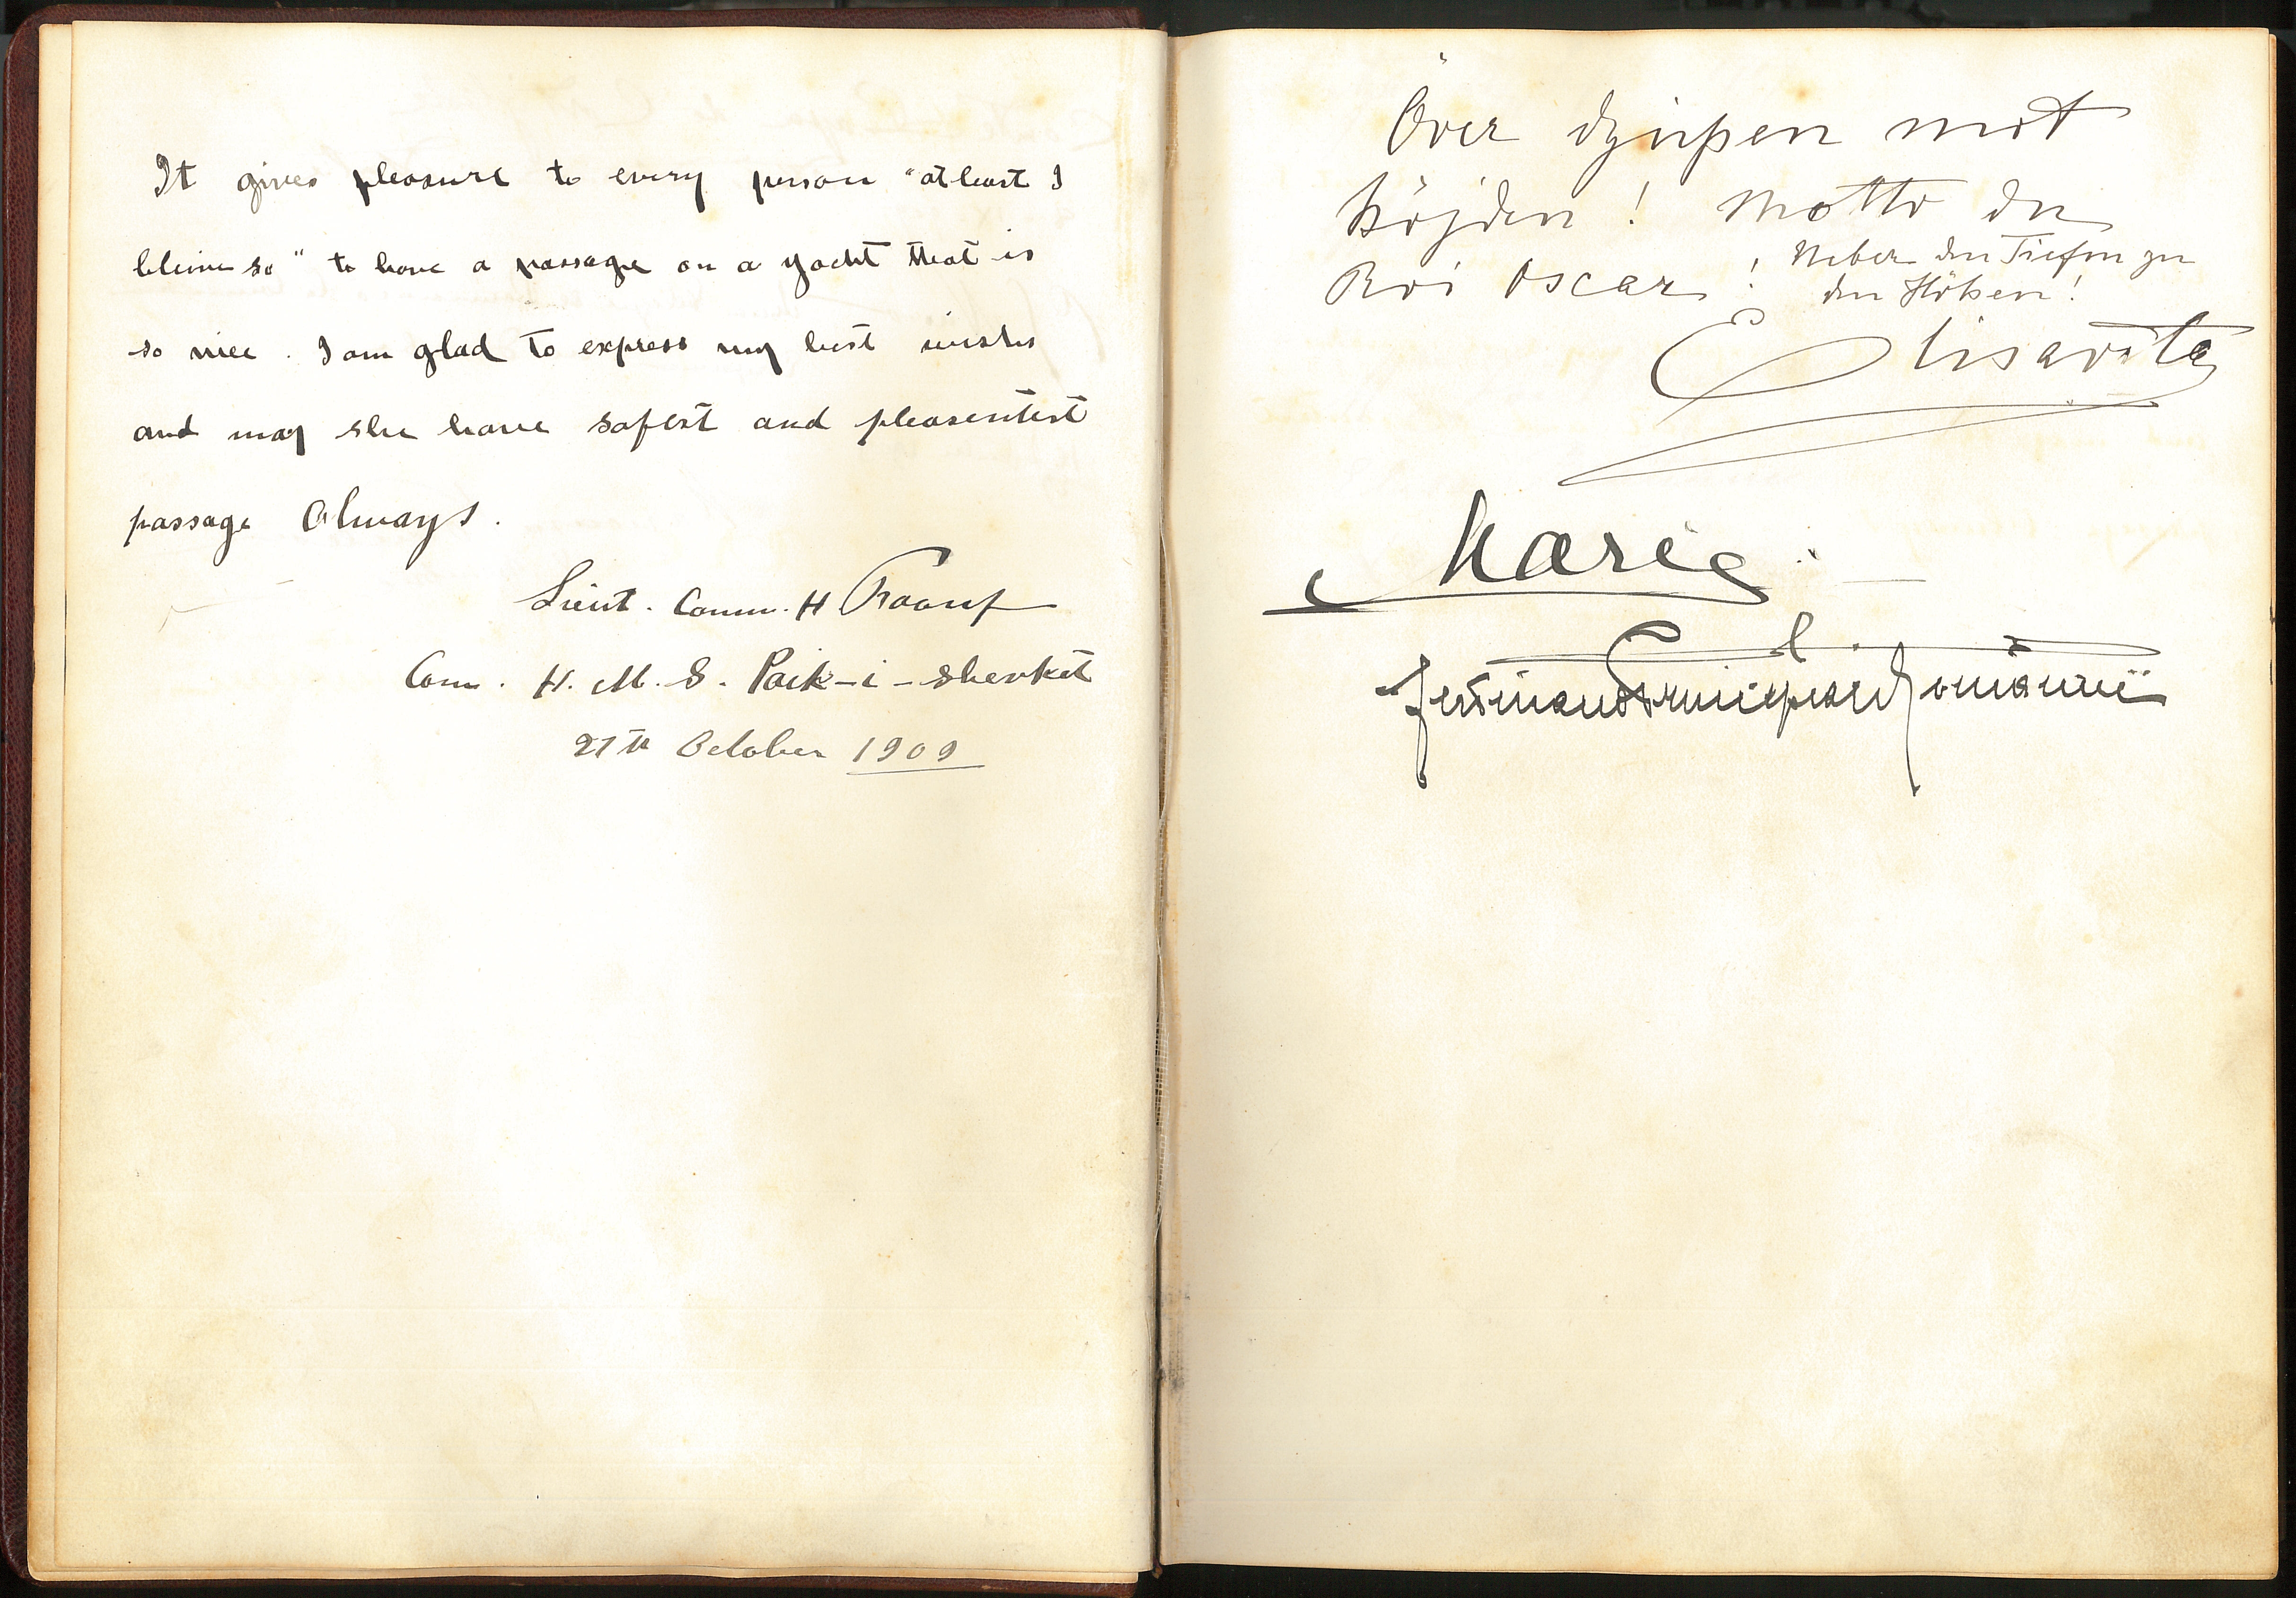 It gives pleasure to every person "at least I
bleive so" to have a passage on a yacht that is
so nice. I am glad to express my best wishes
and may she have safest and pleasentest
passage always.
Lieut. Comm. H Raouf
Com. H. M. S. Paik-i-shevket
27th October 1909
Över djupen mot
höjden! Motto du
Roi Oscar!
Ueber den Tiefen zu
den Höhen!
Elisaveta
Marie.
Ferdinand Principe al României